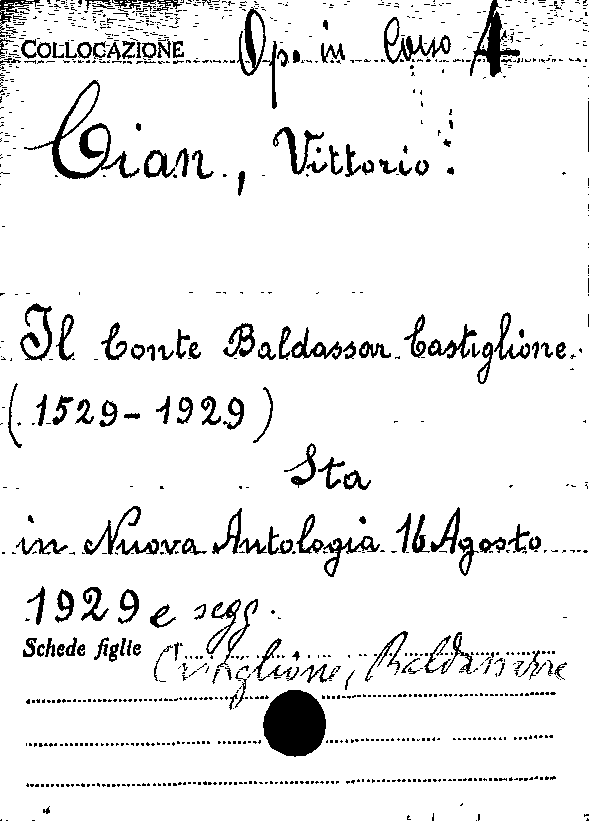 COLLOCAZIONE Op. in Corso 4
Cian, Vittorio.
Il Conte Baldassar Castiglione.
(1529-1929)
Sta
in Nuova Antologia 16 Agosto
1929 e segg.
Schede figlie Castiglione, Baldassarre